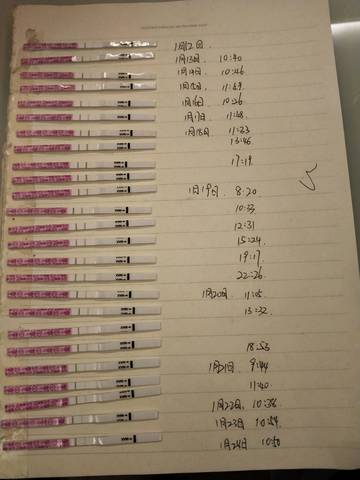 1月12日.
1月13日. 10:40
1月14日. 10:46
1月15日. 11:49
1月16日 10:26
1月17日. 11:48.
1月18日. 11:33
13:46
17:19.
1月19日. 8:20
10:33
12:31
15:24
19:17
22:26
1月20日. 11:05
13:32
18:53
1月21日. 9:44
11:40
1月22日. 10:38
1月23日 10:54
1月24日 10:50